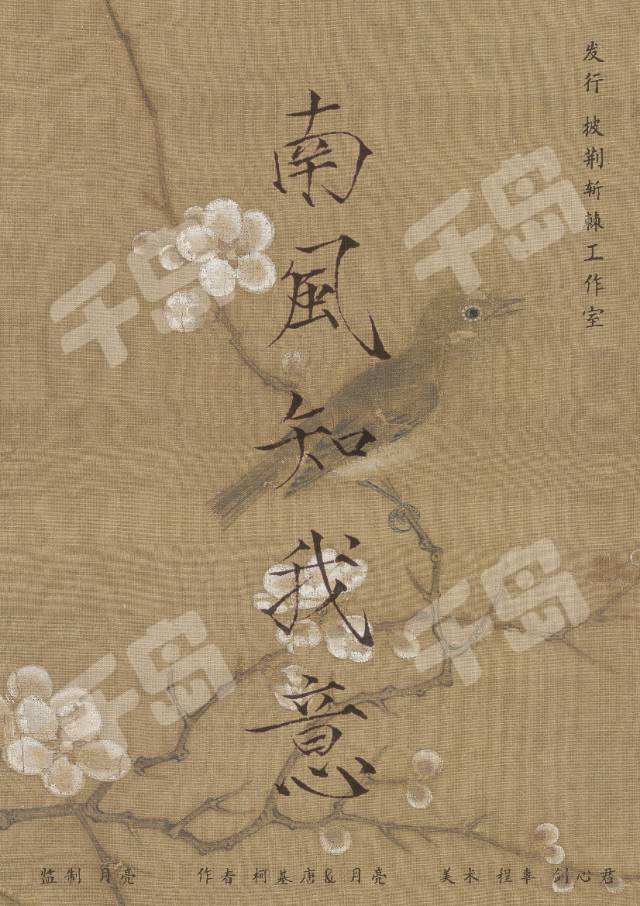 发行 披荆斩棘工作室
南風知我意
千岛
千岛
千岛
千岛
监制 月亮 作者 柯基唐&月亮 美术 程率 剑心君